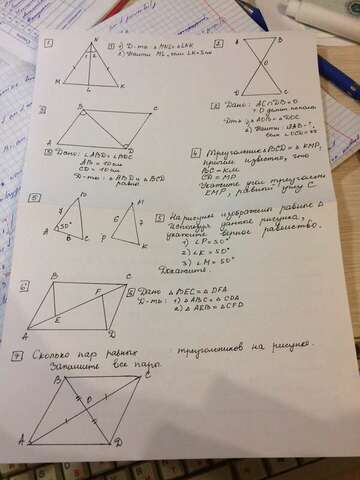 1.
N
1 2
M
L
K
① 1) Д-ть: △MNL = △LNK
2) Найти ML, если LK = 5см
2.
B
A
O
D
C
2. Дано: AC∩DB = O
т. O делит попола
Д-ть 1) △AOB = △DOC
2) Найти: AB - ?,
если
3.
B
C
A
D
3. Дано: ∠ABD = ∠BDC
AB = 10см
CD = 10см
Д-ть: △ABD и △BCD
равно
4. Треугольник △BCD = △KMP,
причем известно, что
BC = KM
CD = MP
Укажите угол треугольн
KMP, равный углу C
5.
D
7
A
50°
B
C
M
6
7
P
K
5. На рисунке изображены равные △
Используя данные рисунка,
укажите верное равенство.
1) ∠P = 50°
2) ∠K = 50°
3) ∠M = 50°
Докажите.
6.
B
C
F
E
A
D
6. Дано: △BEC = △DFA
Д-ть: 1) △ABC = △CDA
2) △AEB = △CFD
7 Сколько пар равных треугольников на рисунке.
Запишите все пары.
B
C
O
A
D